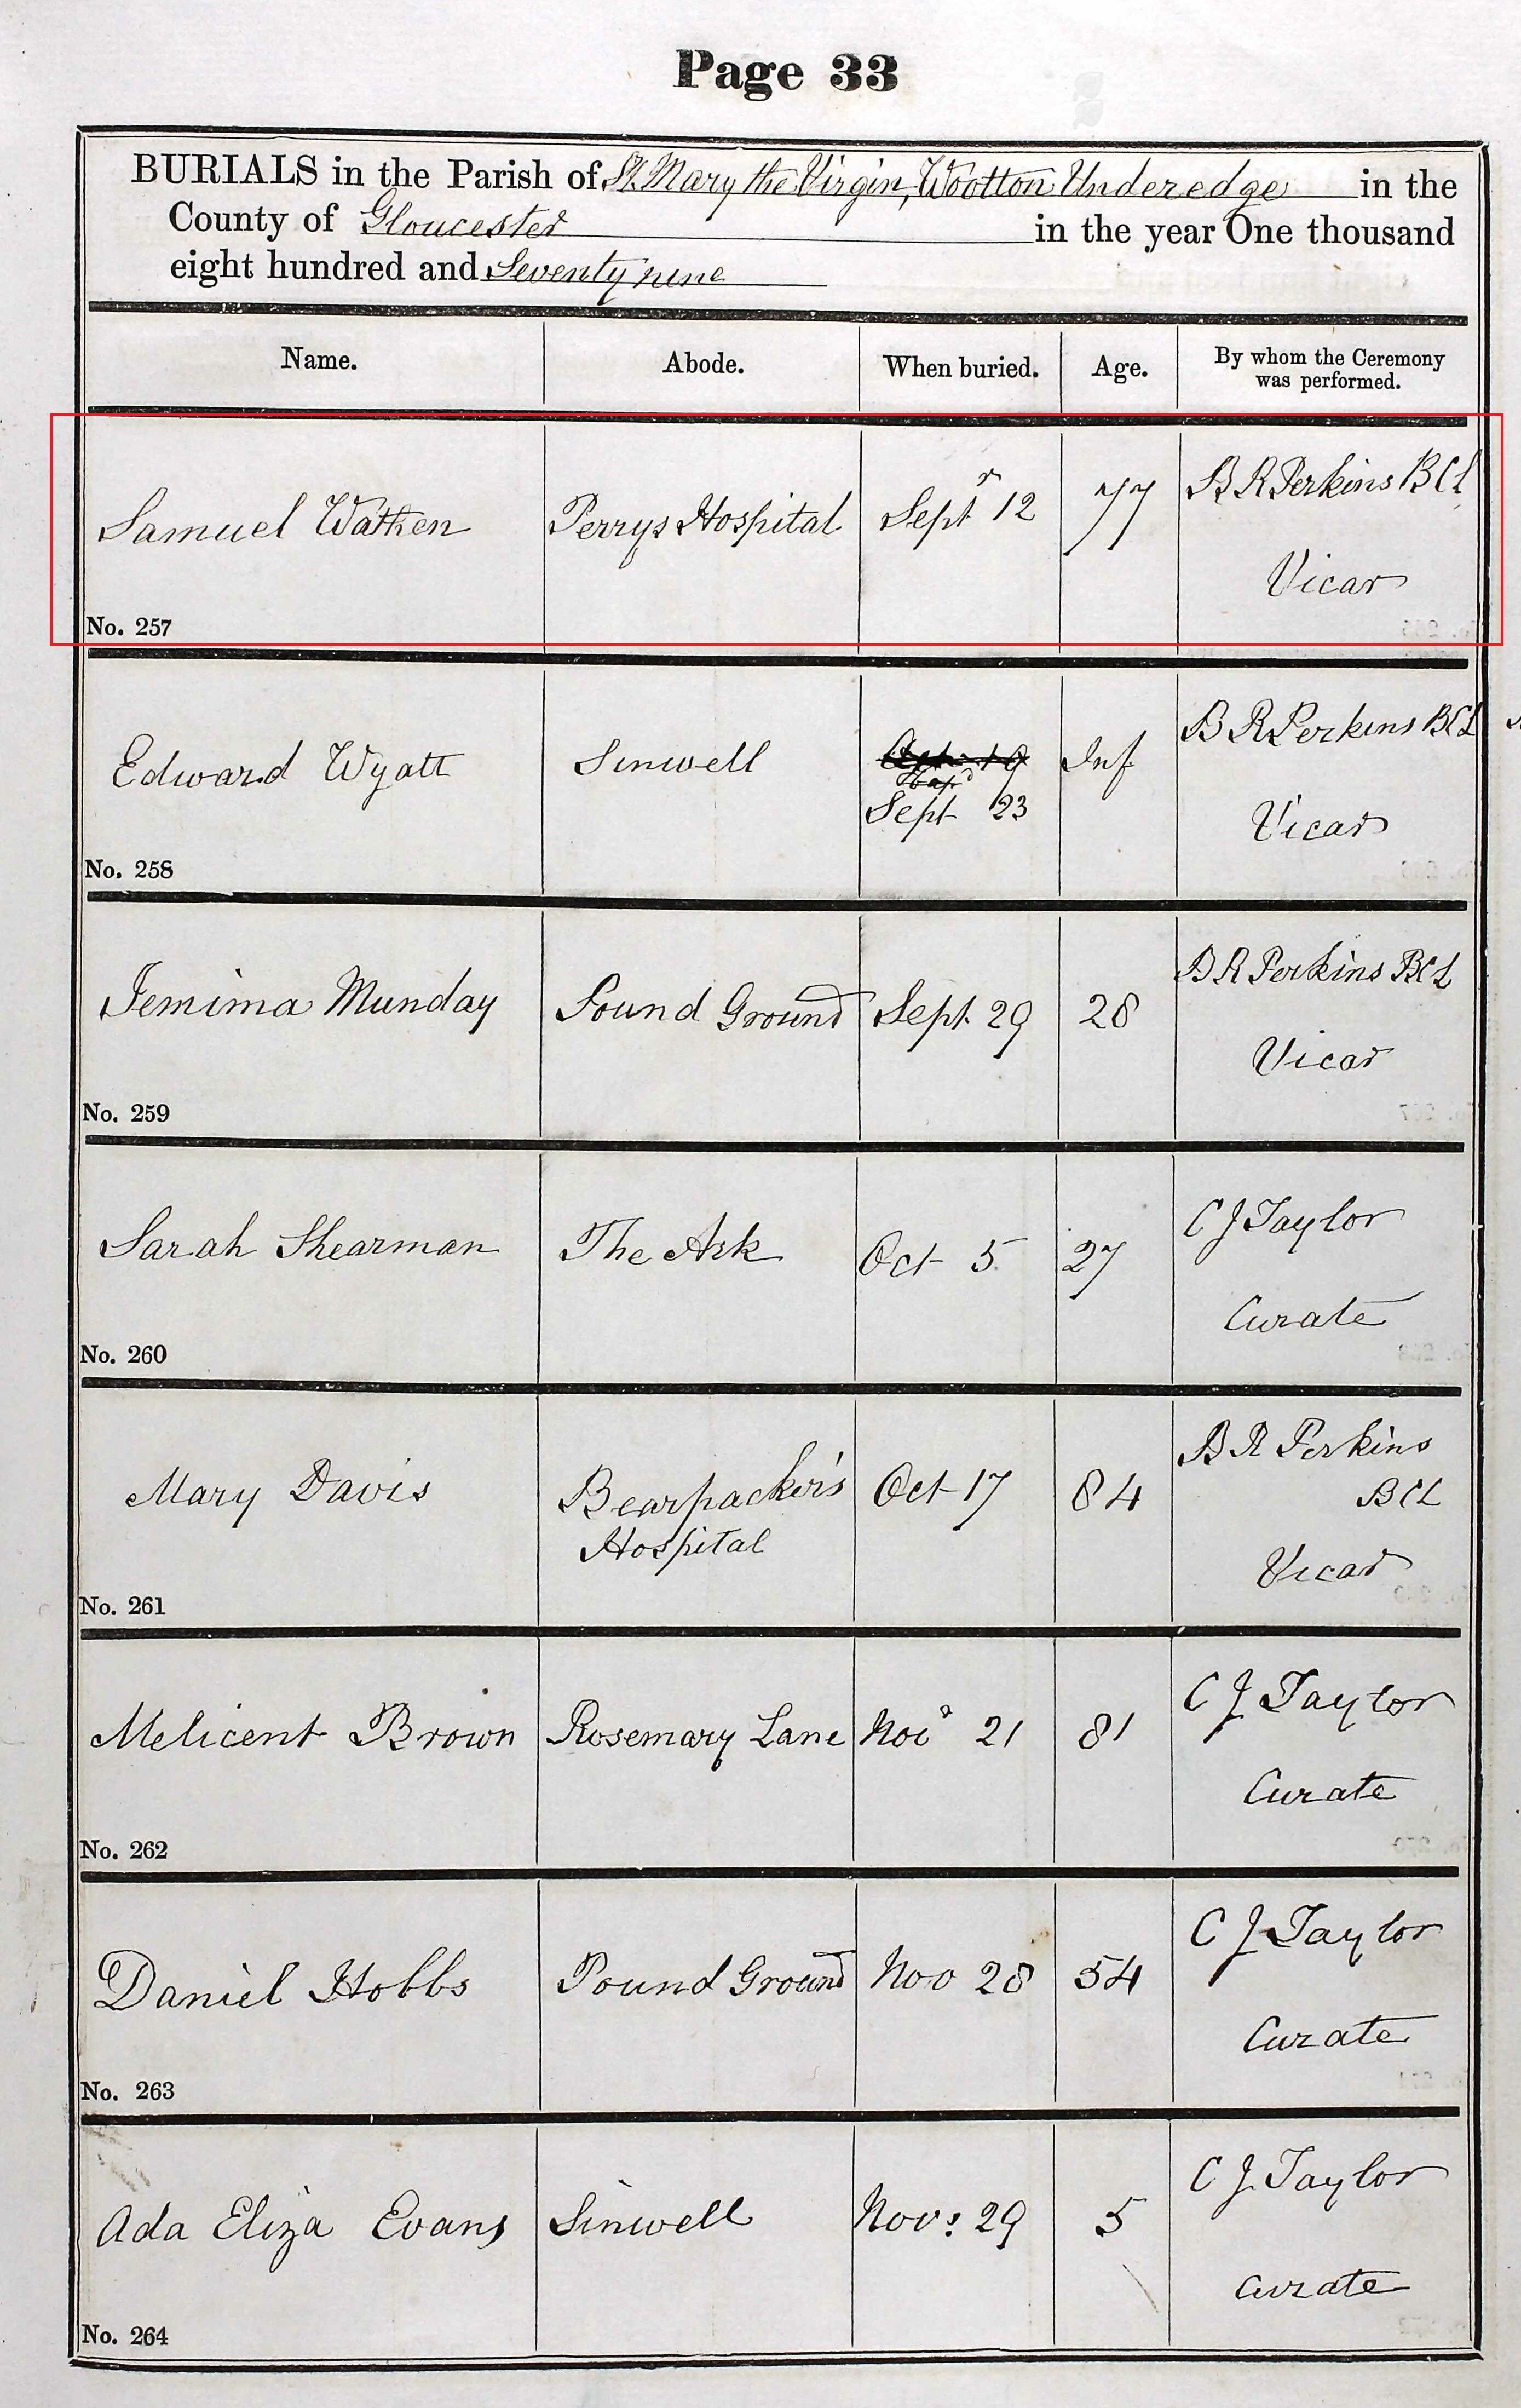 Page 33
BURIALS in the Parish of St. Mary the Virgin, Wootton Underedge in the
County of Gloucester in the year One thousand
eight hundred and Seventy nine
Name. Abode. When buried. Age. By whom the Ceremony was performed.
Samuel Wathen Perrys Hospital Septr 12 77 B R Perkins BCL
Vicar
No. 257
Edward Wyatt Sinwell Sept 23 Inf B R Perkins BCL
Vicar
No. 258
Jemima Munday Pound Ground Sept 29 28 B R Perkins BCL
Vicar
No. 259
Sarah Shearman The Ark Oct 5 27 C J Taylor
Curate
No. 260
Mary Davis Bearpacker's Oct 17 84 B R Perkins
Hospital BCL
Vicar
No. 261
Melicent Brown Rosemary Lane Nov 21 81 C J Taylor
Curate
No. 262
Daniel Hobbs Pound Ground Nov 28 54 C J Taylor
Curate
No. 263
Ada Eliza Evans Sinwell Nov: 29 5 C J Taylor
Curate
No. 264